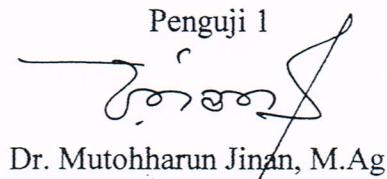 Penguji 1
Dr. Mutohharun Jinan, M.Ag